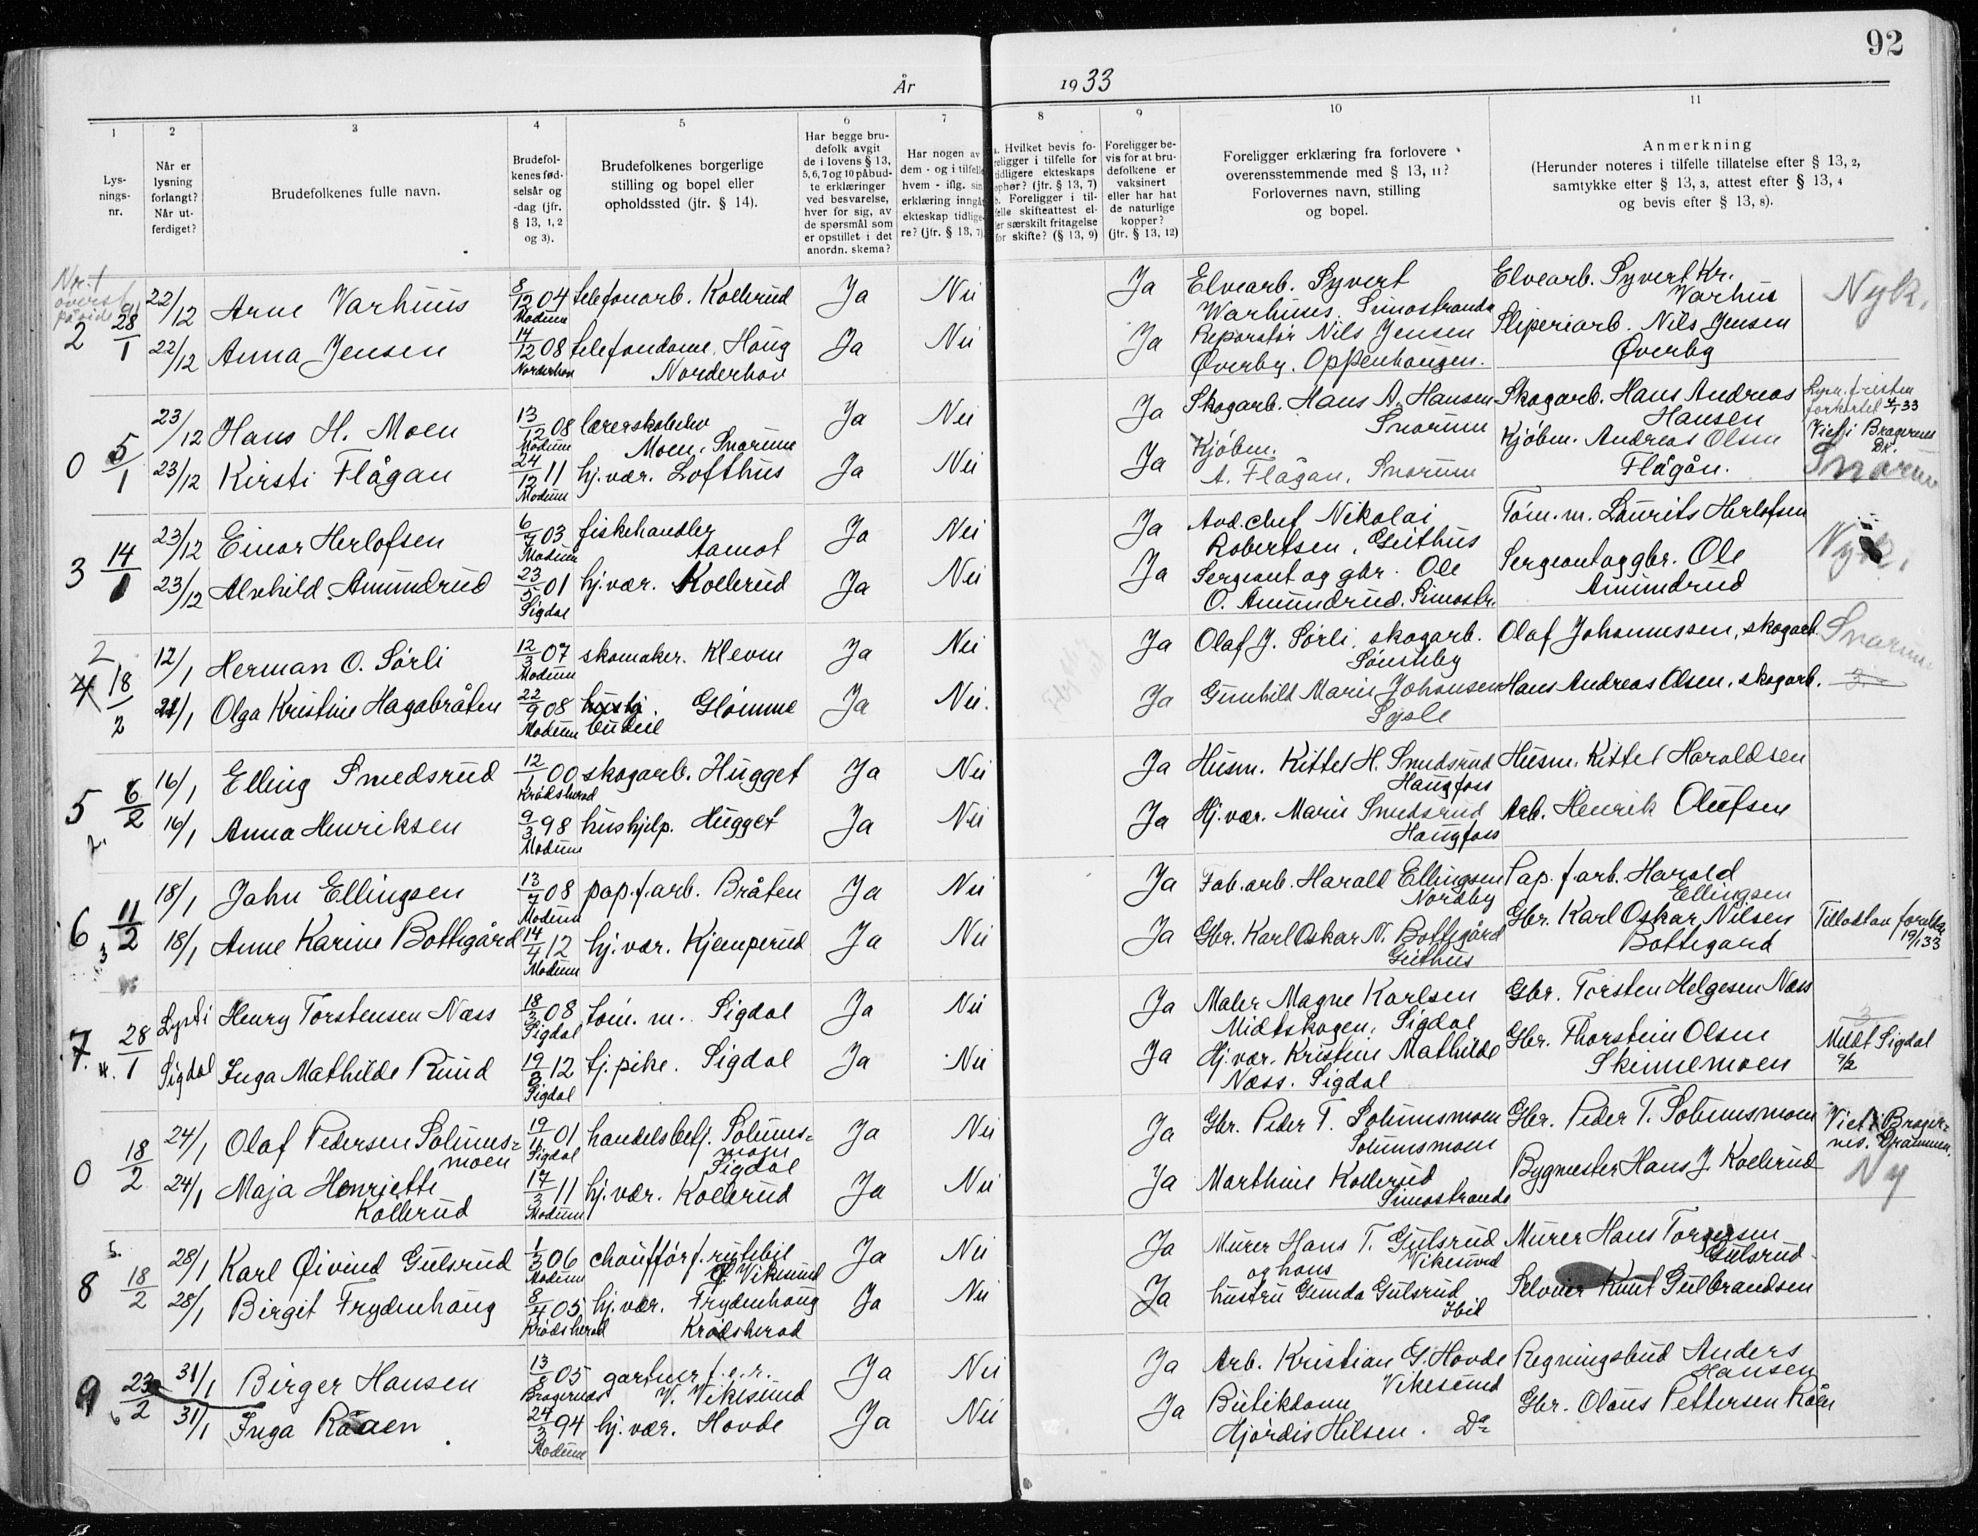 92
År 1933
1 2 3 4 5 6 7 8 9 10 11
Lys-
nings-
nr.
Når er
lysning
forlangt?
Når ut-
ferdiget?
Brudefolkenes fulle navn.
Brudefol-
kenes fød-
selsår og
-dag (jfr.
§ 13, 1, 2
og 3).
Brudefolkenes borgerlige
stilling og bopel eller
opholdssted (jfr. § 14).
Har begge bru-
defolk avgit
de i lovens § 13,
5, 6, 7 og 10 påbud-
te erklæringer
ved besvarelse,
hver for sig, av
de spørsmål som
er opstillet i det
anordn. skema?
Har nogen av
dem - og i tilfelle
hvem - iflg. sin
erklæring inngåt
ekteskap tidlige-
re? (jfr. § 13, 7)
a. Hvilket bevis fo-
religger i tilfelle for
tidligere ekteskaps
ophør? (jfr. § 13, 7)
b. Foreligger i til-
felle skifteattest el-
ler særskilt fritagelse
for skifte? (§ 13, 9)
Foreligger be-
vis for at bru-
defolkene er
vaksinert
eller har hat
de naturlige
kopper?
(jfr. § 13, 12)
Foreligger erklæring fra forlovere
overensstemmende med § 13, 11?
Forlovernes navn, stilling
og bopel.
Anmerkning
(Herunder noteres i tilfelle tillatelse efter § 13, 2,
samtykke efter § 13, 3, attest efter § 13, 4
og bevis efter § 13, 8).
Nr. 1
øverst
på side 91
2 28/1 22/12 Arne Varhuus 8/12 04 Modum telefonarb. Kollerud Ja Nei Ja Elvearb. Syvert
Warhuus. Simostranda Elvearb. Syvert Kr.
Varhus Nyk.
22/12 Anna Jensen 14/12 08 Norderhov telefondame, Haug
Norderhov Ja Nei Ja Reparatør Nils Jensen
Øverby. Oppenhaugen. Sliperiarb. Nils Jensen
Øverby
0 5/1 23/12 Hans H. Moen 13/12 08 Modum lærerskoleelev
Moen, Snarum Ja Nei Ja Skogarb. Hans A. Hansen
Snarum Skogarb. Hans Andreas
Hansen Lysn. fristen
forkortet 4/1 33
Viet i Bragernes
Dr.
23/12 Kirsti Flågan 24/12 11 Modum hj. vær. Lofthus Ja Nei Ja Kjøbm.
A. Flågan, Snarum Kjøbm. Andreas Olsen
Flågån. Snarum
3 14/1 23/12 Einar Herlofsen 6/7 03 Modum fiskehandler
Aamot Ja Nei Ja Avd. chef Nikolai
Robertsen, Geithus Tøm. m. Laurits Herlofsen Nyk.
23/12 Alvhild Amundrud 23/5 01 Sigdal hj. vær. Kollerud Ja Nei Ja Sergeant og gbr. Ole
O. Amundrud. Simostr. Sergeant og gbr. Ole
Amundrud
2
4 18/2 12/1 Herman O. Sørli 12/3 07 Modum skomaker. Kleven Ja Nei Ja Olaf J. Sørli, skogarb.
Sønsteby Olaf Johannessen, skogarb. Snarum
21/1 Olga Kristine Hagabråten 22/9 08 Modum budeie Glømme Ja Nei. Ja Gunhild Marie Johansen
Sysle Hans Andreas Olsen, skogarb. 3.
5 6/2 16/1 Elling Smedsrud 12/1 00 Krødsherad skogarb. Hugget Ja Nei Ja Husm. Kittel H. Smedsrud
Haugfoss Husm. Kittel Haraldsen
2. 16/1 Anna Henriksen 9/3 98 Modum hushjelp. Hugget Ja Nei Ja Hj. vær. Marie Smedsrud
Haugfoss Arb. Henrik Olufsen
6 11/2 18/1 John Ellingsen 13/7 08 Modum pap. f. arb. Bråten Ja Nei Ja Fab. arb. Harald Ellingsen
Nordby Pap. f. arb. Harald
Ellingsen
3 18/1 Anne Karine Bottegård 14/4 12 Modum hj. vær. Kjemperud Ja Nei Ja Gbr. Karl Oskar N. Bottegård
Geithus Gbr. Karl Oskar Nilsen
Bottegard
19/1 33
7. 28/1 Lyst i Henry Torstensen Næss 18/3 08 Sigdal tøm. m. Sigdal Ja Nei Ja Maler Magne Karlsen
Midtskogen, Sigdal Gbr. Torsten Helgesen Næss
4. Sigdal Inga Mathilde Ruud 19/8 12 Sigdal hj. pike. Sigdal Ja Nei Ja Hj. vær. Kristine Mathilde
Næss. Sigdal Gbr. Thorstein Olsen
Skinnemoen Meldt Sigdal
9/2
0 18/2 24/1 Olaf Pedersen Solums=
moen 19/11 01 Sigdal handelsbetj. Solums=
moen
Sigdal Ja Nei Ja Gbr. Peder T. Solumsmoen
Solumsmoen Gbr. Peder T. Solumsmoen Viet i Brager-
nes. Drammen.
24/1 Maja Henriette
Kollerud 17/3 11 Modum hj. vær. Kollerud Ja Nei Ja Marthine Kollerud
Simostranda Bygmester Hans J. Kollerud Ny
5.
8 18/2 28/1 Karl Øivind Gulsrud 1/3 06 Modum chauffør f. rutebil
Vikesund Ja Nei Ja Murer Hans T. Gulsrud
og hans Vikesund Murer Hans Torgersen
Gulsrud
28/1 Birgit Frydenhaug 8/4 05 Krødsherad hj. vær. Frydenhaug
Krødsherad Ja Nei Ja hustru Gunda Gulsrud
Ibid Selveier Knut Gulbrandsen
9 23/2 31/1 Birger Hansen 13/8 05 Bragernæs gartner f. e. r.
V. Vikesund Ja Nei Ja Arb. Kristian G. Hovde
Vikesund Regningsbud Anders
Hansen
6 31/1 Inga Råaen 24/3 94 Modum hj. vær. Hovde Ja Nei Ja Butikdame
Hjørdis Hilsen. Do Gbr. Olaus Pettersen Råen